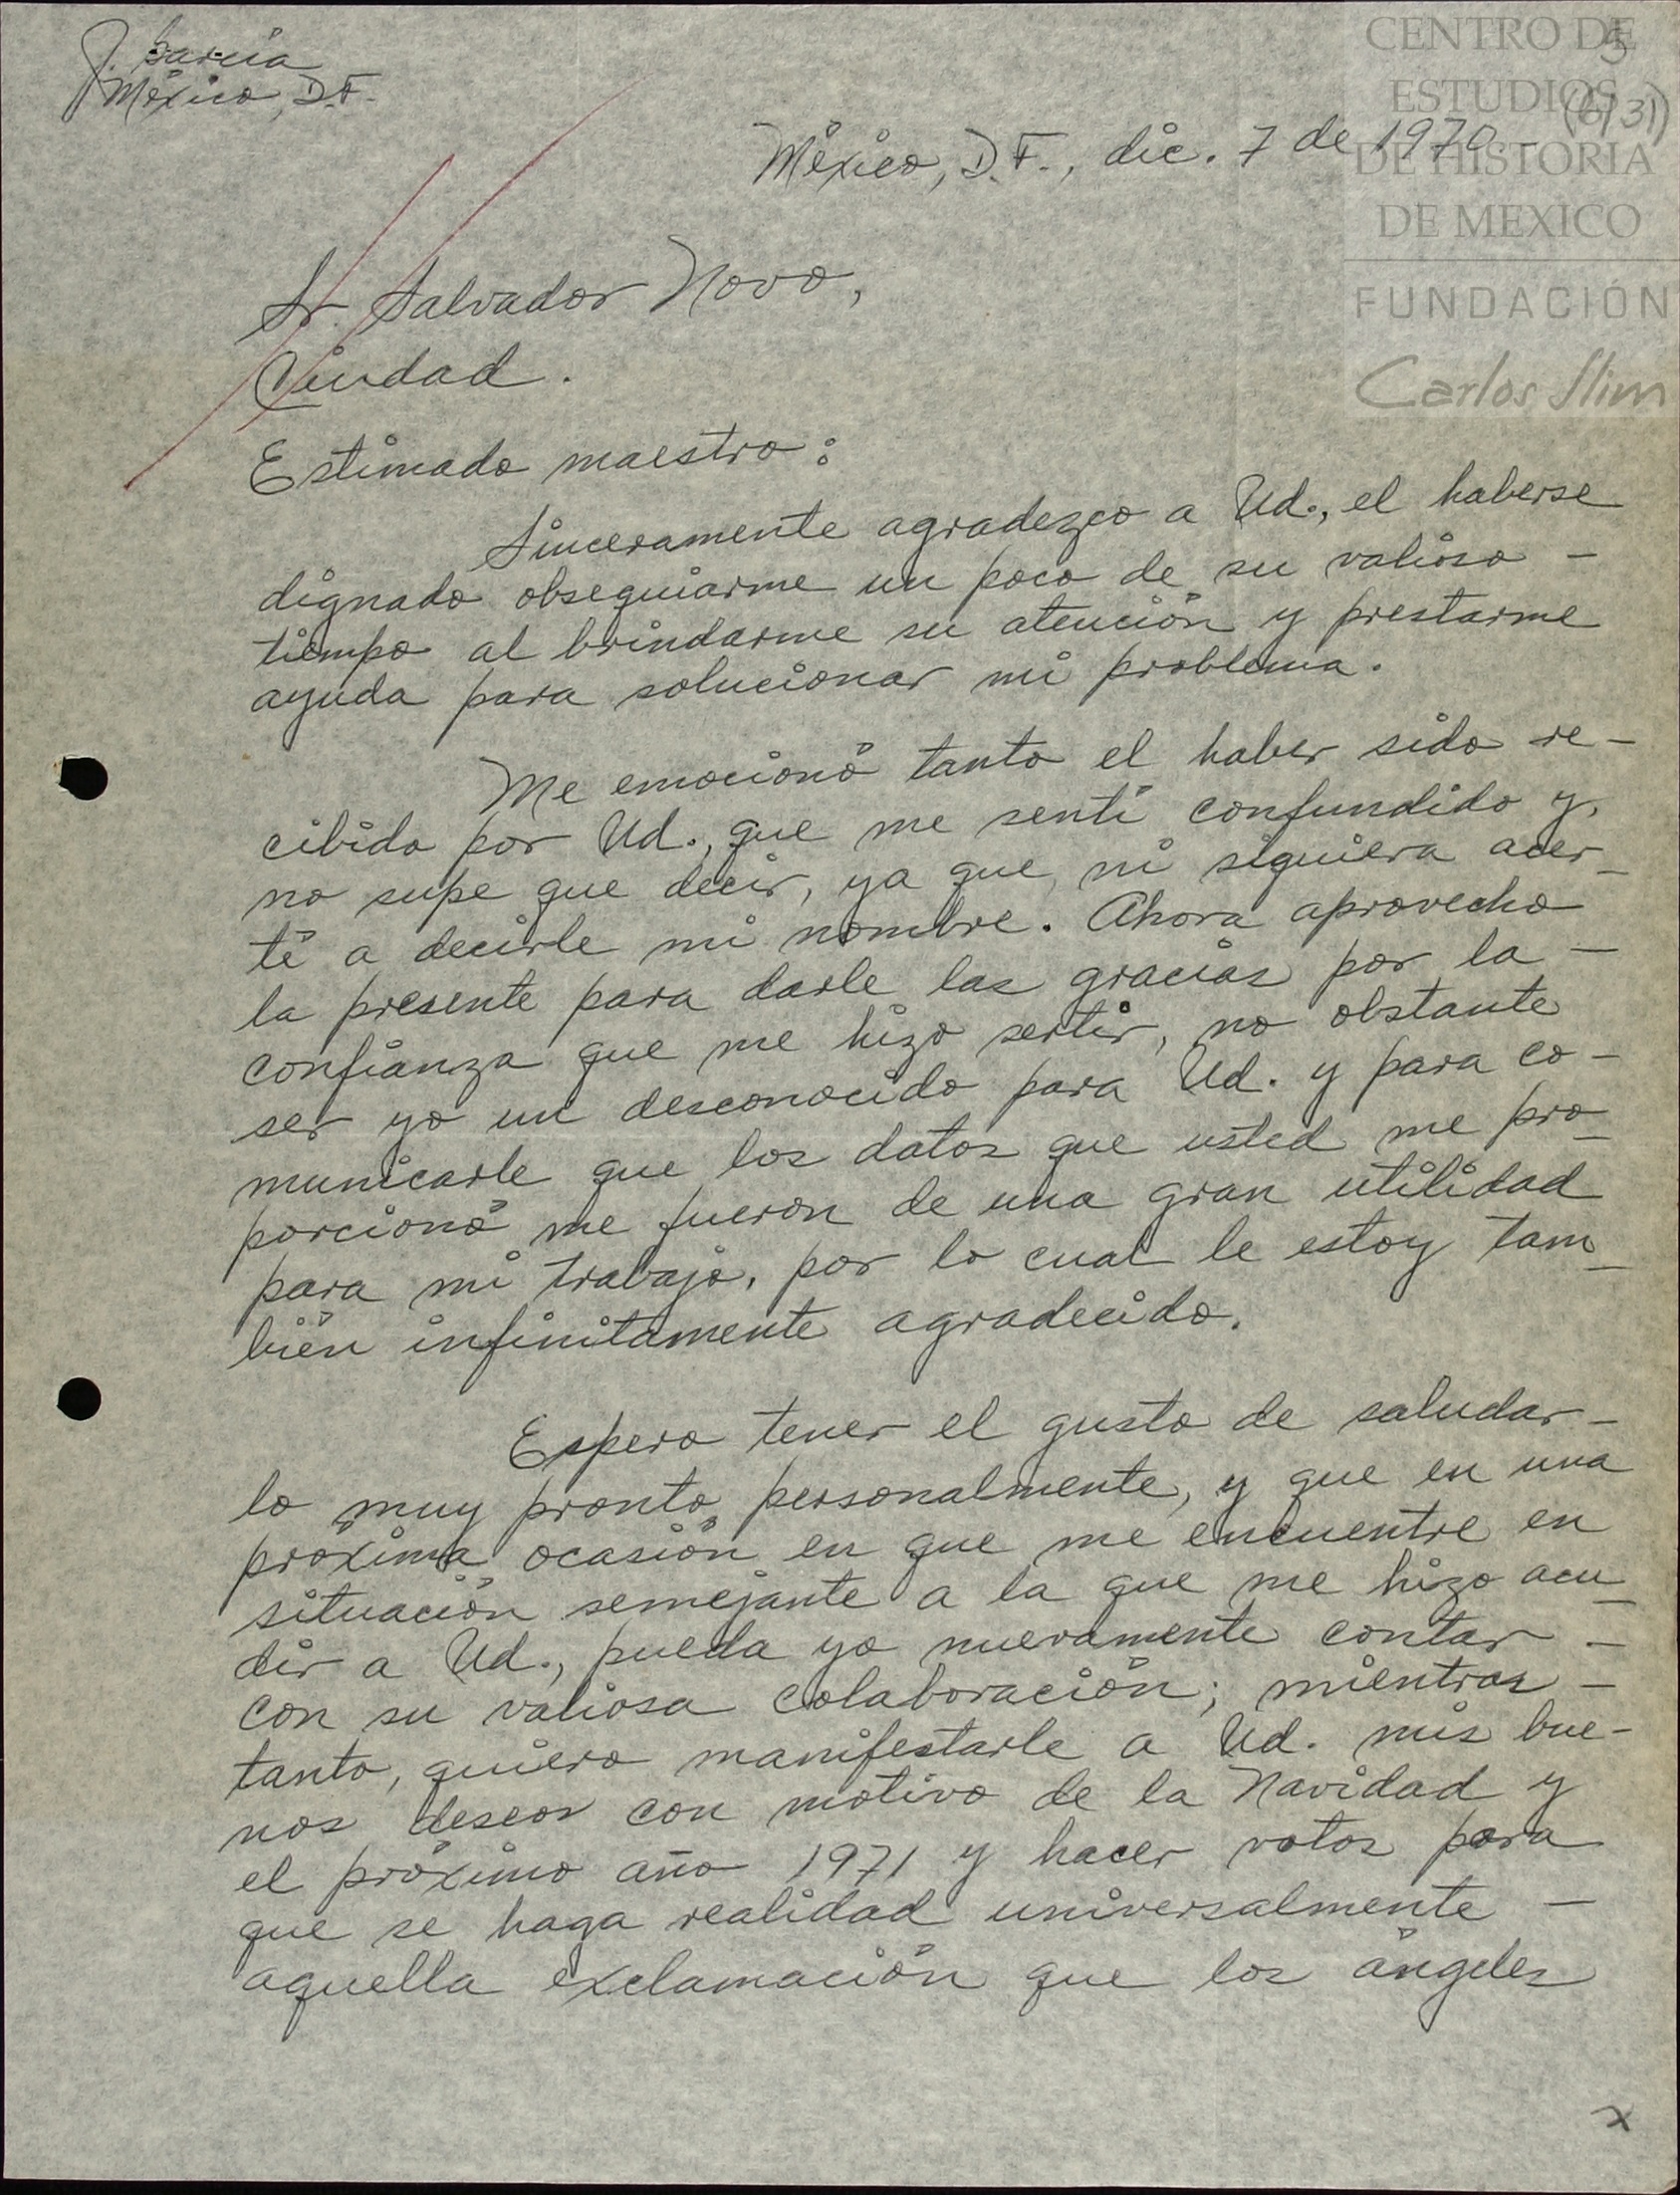 J. García
México, D.F.
5
(6/31)
CENTRO DE
ESTUDIOS
DE HISTORIA
DE MEXICO
FUNDACIÓN
Carlos Slim
México, D.F., dic. 7 de 1970
Sr. Salvador Novo,
Ciudad.
Estimado maestro:
Sinceramente agradezco a Ud., el haberse
dignado obsequiarme un poco de su valioso -
tiempo al brindarme su atención y prestarme
ayuda para solucionar mi problema.
Me emocionó tanto el haber sido re-
cibido por Ud., que me sentí confundido y,
no supe que decir, ya que, ni siquiera acer-
té a decirle mi nombre. Ahora aprovecho
la presente para darle las gracias por la -
confianza que me hizo sertir, no obstante
ser yo un desconocido para Ud. y para co-
municarle que los datos que usted me pro-
porcionó me fueron de una gran utilidad
para mi trabajo, por lo cual le estoy tam-
bién infinitamente agradecido.
Espero tener el gusto de saludar-
lo muy pronto, personalmente, y que en una
próxima ocasión en que me encuentre en
situación semejante a la que me hizo acu-
dir a Ud., pueda yo nuevamente contar -
con su valiosa colaboración; mientras -
tanto, quiero manifestarle a Ud. mis bue-
nos deseos con motivo de la Navidad y
el próximo año 1971 y hacer votos para
que se haga realidad universalmente -
aquella exclamación que los ángeles